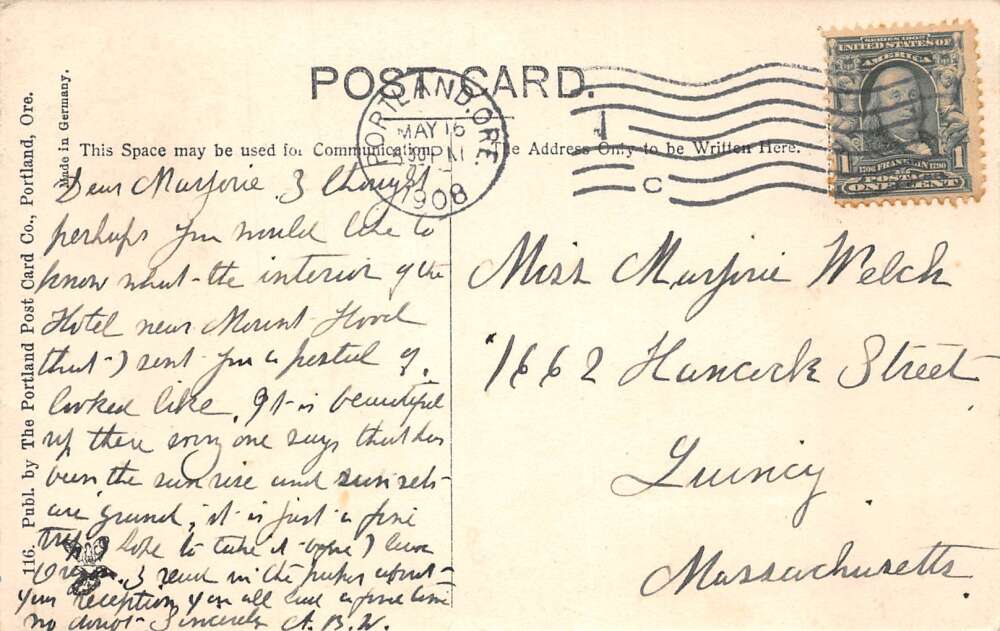 POST CARD.
PORTLAND, ORE.
MAY 16
1908
C
SERIES 1902
UNITED STATES OF
AMERICA
1706 FRANKLIN 1790
1 1
POSTAGE
ONE CENT
This Space may be used for Communication.
Address Only to be Written Here.
116. Publ. by The Portland Post Card Co., Portland, Ore.
Made in Germany.
Dear Marjorie I thought
perhaps you would like to
know what the interior of the
Hotel near Mount Hood
that I sent you a postal of,
looked like. It is beautiful
up there every one says that has
been the sun rise and sun sets
are grand, it is just a fine
trip I hope to take it before I leave
Oregon. I read in the paper about
your reception, you all had a fine time
no doubt - Sincerely A. B. W.
Miss Marjorie Welch
1662 Hancock Street
Quincy
Massachusetts.